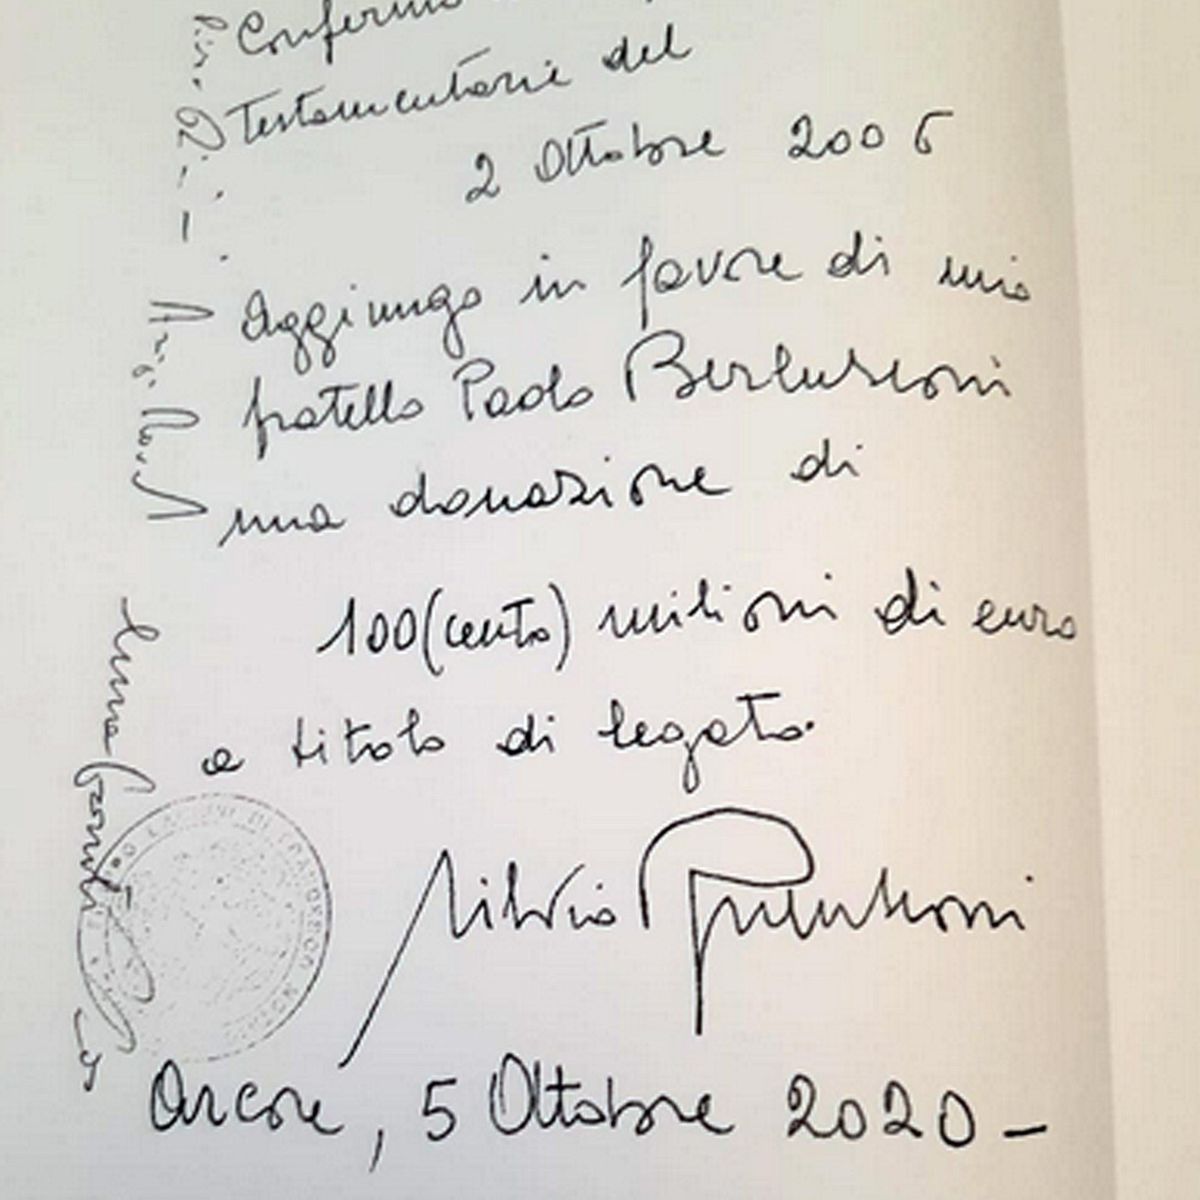 Testamentarie del
2 Ottobre 2006
Aggiungo in favore di mio
fratello Paolo Berlusconi
una donazione di
100 (cento) milioni di euro
a titolo di legato.
Silvio Berlusconi
Arcore, 5 Ottobre 2020 -